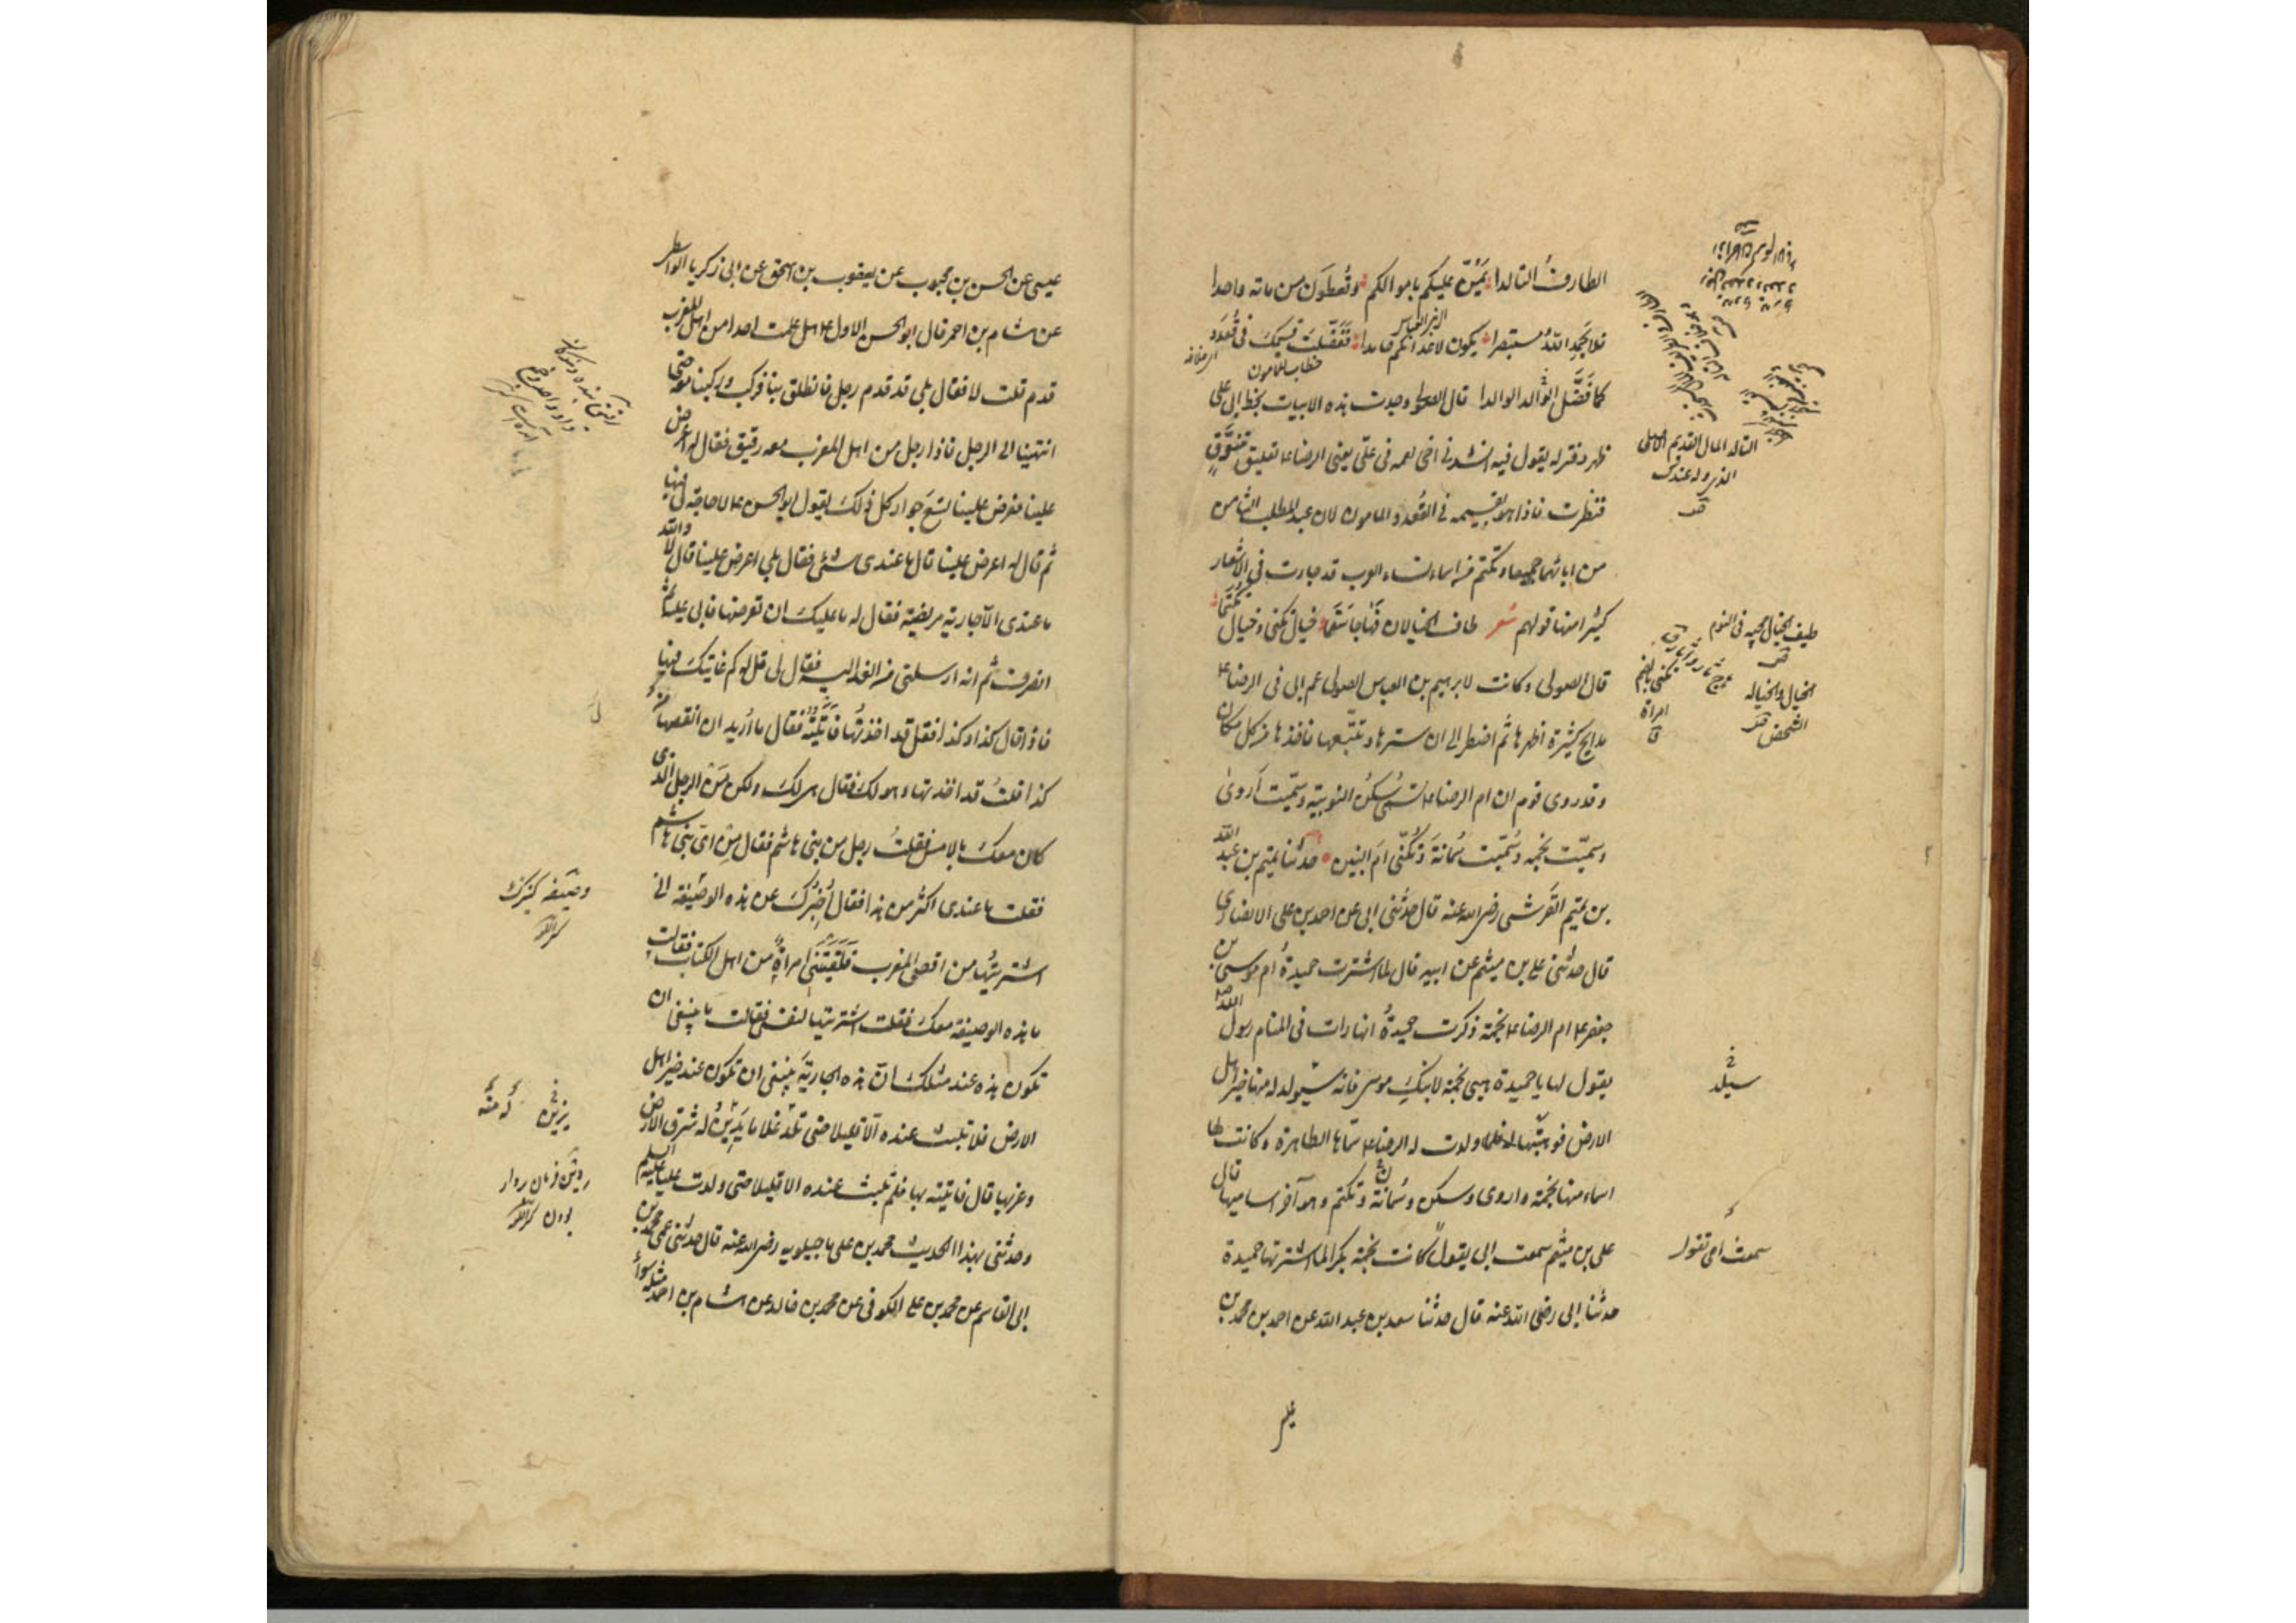 الطارف التالدا يَمُنّ عليكم باموالكم وتُعطَون من ماته واحدا
فلا يَحمَد اللهَ مُستبصرا يكون لاعدائكم حامدا فَفَضَّلتَ قَسيمكَ فى قُعدَد
خطاب للمامون
كما فَضَّل الوالد الوالدا قال الصولى وجدت هذه الابيات بخط ابى على
ظهر دفتر له يقول فيه انشدنى اخى لعمه فى علىّ يعنى الرضا ع تعليق مُتَوّقٍ
فنظرت فاذا هو بقسيمه فى القُعدد المامون لان عبد المطلب الثامن
من ابائهما جميعا وتكتم من اسماء نساء العرب قد جاءت فى الاشعار
كثيرا منها قولهم شعر طاف الخيالان فَهَاجا سَقَما خيال تُكنى وخيال تُكتَما
قال الصولى وكانت لابرهيم بن العباس الصولى عم ابى فى الرضا ع
مدايح كثيرة اظهرها ثم اضطر الى ان سترها وتتبّعها فاخذها من كل مكان
وقد روى قوم ان ام الرضا ع تسمى سُكَن النوبية وسمّيت اَروىٰ
وسميّت نجمه وسُمّيت سُمانَة وتُكنّى امَ البنين حدثنا تميم بن عبد الله
بن تميم القرشى رضى الله عنه قال حدثنى ابى عن احمد بن على الانصارى
قال حدثنى على بن ميثم عن ابيه قال لما اشترت حميدةُ ام موسى بن
جعفر ع ام الرضا ع نجمة ذكرت حميدةُ انها رات فى المنام رسول الله ص
يقول لها يا حميدة هبى نجمة لابنكِ موسى فانه سَيُولد له منها خير اهل
الارض فوهبَتها له فلما ولدت له الرضا ع سمّاها الطاهرة وكانت لها
اسماء منها نجمة واروى وسكن وسُمانَة وتكتم وهو آخر اساميها قال
على بن ميثم سمعت ابى يقول كانت نجمة بكرا لما اشترتها حميدة
حدثنا ابى رضى الله عنه قال حدثنا سعد بن عبد الله عن احمد بن محمد بن
التالد المال القديم الاصلى
الذى ولد عندك
طيف الخيال مجيه فى النوم
الخيال والخيالة
الشخص
تكنى بالضم
امراة
سيلد
سمعت امى تقول
عيسى عن الحسن بن محبوب عن يعقوب بن اسحق عن ابى زكريا الواسطى
عن هشام بن احمر قال ابو الحسن الاول ع هل علمت احدا من اهل المغرب
قدم قلت لا فقال بلى قد قدم رجل فانطلق بنا فركب وركبنا معه حتى
انتهينا الى الرجل فاذا رجل من اهل المغرب معه رقيق فقال له اعرض
علينا فعرض علينا تسعَ جوار كل ذلكَ يقول ابو الحسن ع لا حاجة لى فيها
ثم قال له اعرض علينا قال ما عندى شئى فقال بلى اعرض علينا قال لا والله
ما عندى الا جارية مريضة فقال له ما عليكَ ان تعرضها فابى عليه ثم
انصرف ثم انه ارسلنى من الغد اليه فقال لى قل له كم غايتك فيها
فاذا قال كذا وكذا فقل قد اخذتُها فَاَتَيتُه فقال ما اُريد ان انقصها من
كذا قلتُ قد اخذتها وهو لك فقال هى لكَ ولكن مَن الرجل الذى
كان معكَ بالامس فقلتُ رجل من بنى هاشم فقال مِن اىّ بنى هاشم
فقلت ما عندى اكثر من هذا فقال اُخبِرُكَ عن هذه الوصيفة انى
اشتريتُها من اقصى المغرب فَلَقِيَتنى امراةٌ من اهل الكتاب فقالت
ما هذه الوصيفة معكَ فقلت اشتريتها لنفسى فقالت ما ينبغى ان
تكون هذه عند مثلكَ انّ هذه الجاريَة ينبغى ان تكون عند خير اهل
الارض فلا تلبث عنده الّا قليلا حتى تلد غلاما يَدِينُ له شرق الارض
وغربها قال فاتيته بها فلم تلبث عنده الا قليلا حتى ولدت عليا عليه السلم
وحدثنى بهذا الحديث محمد بن على ماجيلويه رضى الله عنه قال حدثنى عمى محمد بن
ابى القاسم عن محمد بن على الكوفى عن محمد بن خالد عن هشام بن احمد مثله سواءً
وصيفه كنيزك